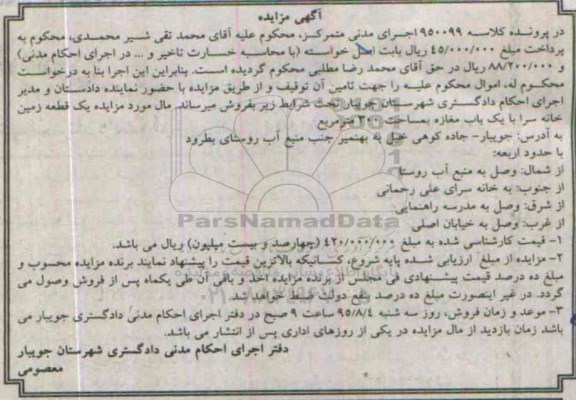 آگهی مزایده
در پرونده کلاسه ۹۵۰۰۹۹ اجرای مدنی متمرکز، محکوم علیه آقای محمد تقی شیر محمدی، محکوم به
پرداخت مبلغ ٤٥/۰۰۰/۰۰۰ ریال بابت اصل خواسته (با محاسبه خسارت تاخیر و ... در اجرای احکام مدنی)
و ۸۸/۲۰۰/۰۰۰ ریال در حق آقای محمد رضا مطلبی محکوم گردیده است. بنابراین این اجرا بنا به درخواست
محکوم له، اموال محکوم علیه را جهت تامین آن توقیف و از طریق مزایده با حضور نماینده دادستان و مدیر
اجرای احکام دادگستری شهرستان جویبار تحت شرایط زیر بفروش میرساند. مال مورد مزایده یک قطعه زمین
خانه سرا با یک باب مغازه بمساحت ۳۰۰ مترمربع
به آدرس: جویبار- جاده کوهی خیل به بهنمیر جنب منبع آب روستای بطرود
با حدود اربعه:
از شمال: وصل به منبع آب روستا
از جنوب: به خانه سرای علی رحمانی
از شرق: وصل به مدرسه راهنمایی
از غرب: وصل به خیابان اصلی
ParsNamadData
۱- قیمت کارشناسی شده به مبلغ ٤۲۰/۰۰۰/۰۰۰ (چهارصد و بیست میلیون) ریال می باشد.
۲- مزایده از مبلغ ارزیابی شده پایه شروع، کسانیکه بالاترین قیمت را پیشنهاد نمایند برنده مزایده محسوب و
مبلغ ده درصد قیمت پیشنهادی فی مجلس از برنده مزایده اخذ و باقی آن طی یکماه پس از فروش وصول می
گردد. در غیر اینصورت مبلغ ده درصد بنفع دولت ضبط خواهد شد.
۳- موعد و زمان فروش، روز سه شنبه ۹٥/۸/٤ ساعت ۹ صبح در دفتر اجرای احکام مدنی دادگستری جویبار می
باشد زمان بازدید از مال مزایده در یکی از روزهای اداری پس از انتشار می باشد.
دفتر اجرای احکام مدنی دادگستری شهرستان جویبار
معصومی